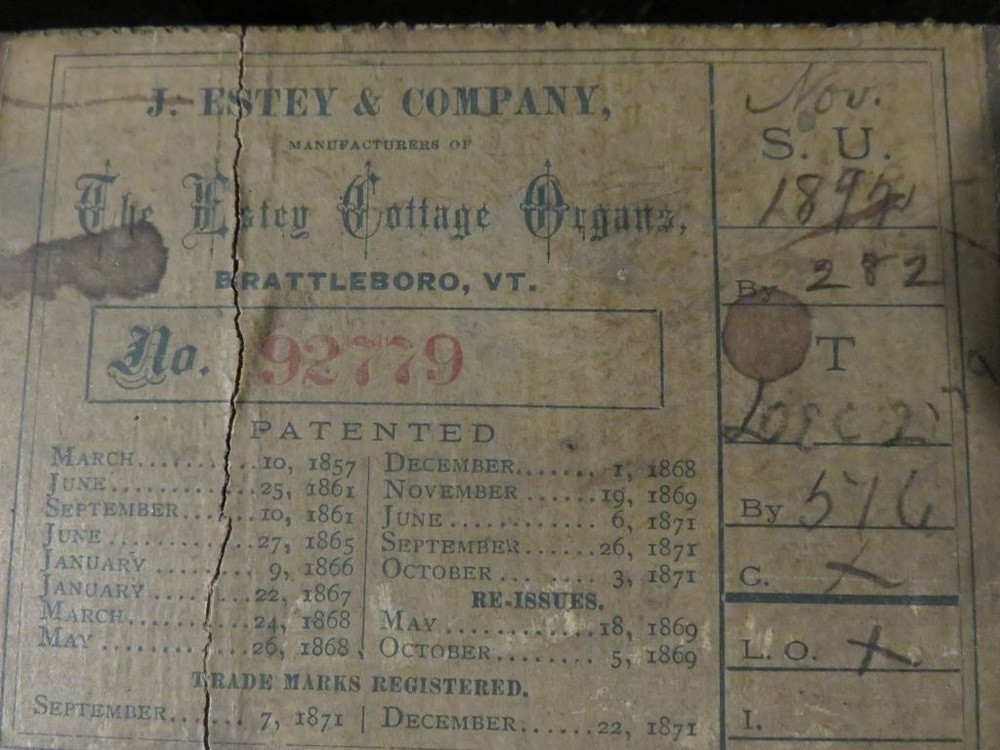 J. ESTEY & COMPANY,
MANUFACTURERS OF
The Estey Cottage Organs,
BRATTLEBORO, VT.
No. 92779
PATENTED
MARCH.............10, 1857
JUNE...............25, 1861
SEPTEMBER........10, 1861
JUNE...............27, 1865
JANUARY..........9, 1866
JANUARY..........22, 1867
MARCH.............24, 1868
MAY................26, 1868
DECEMBER.......1, 1868
NOVEMBER.......19, 1869
JUNE..............6, 1871
SEPTEMBER......26, 1871
OCTOBER.........3, 1871
RE-ISSUES.
MAY..............18, 1869
OCTOBER.........5, 1869
TRADE MARKS REGISTERED.
SEPTEMBER.......7, 1871
DECEMBER.......22, 1871
Nov.
S. U.
By 282
T
By 516
C. X
L. O. X
I.